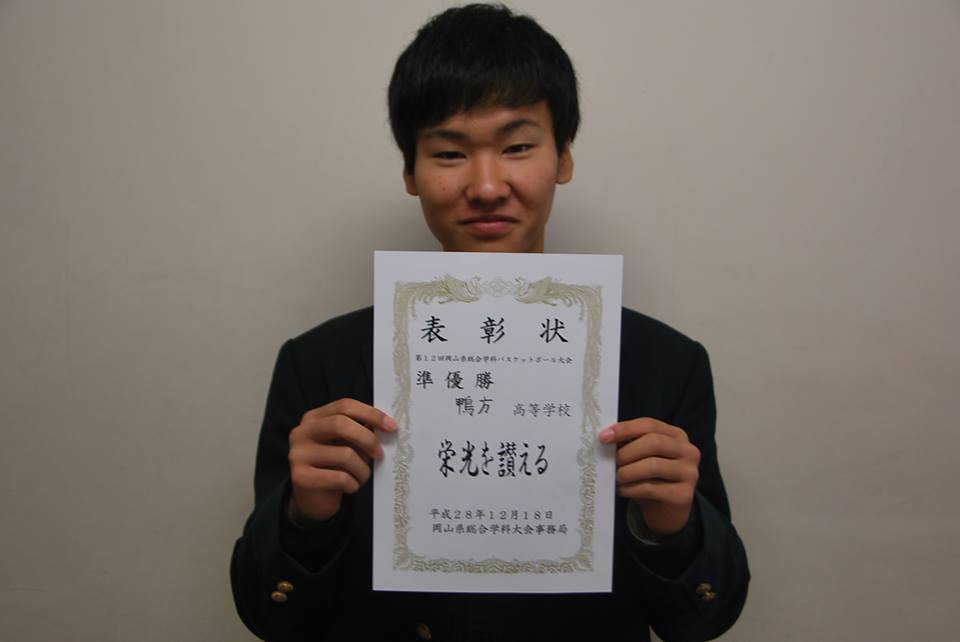 表彰状
第12回岡山県総合学科バスケットボール大会
準優勝
鴨方 高等学校
栄光を讃える
平成28年12月18日
岡山県総合学科大会事務局